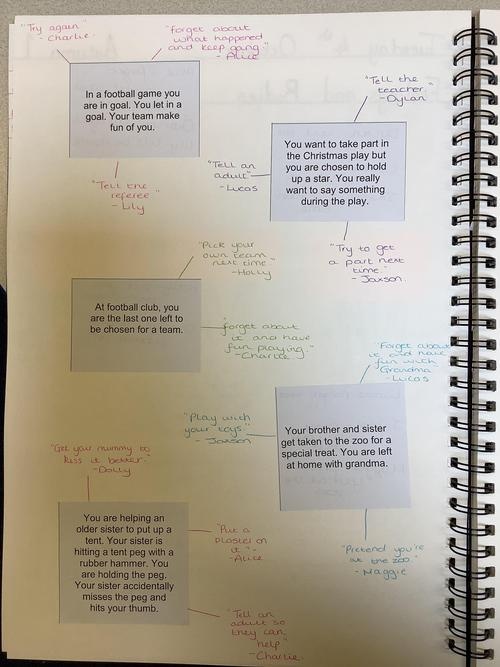 "Try again"
- Charlie
"forget about
what happened
and keep gang."
- Alice
In a football game you
are in goal. You let in a
goal. Your team make
fun of you.
"Tell the
referee"
- Lily
"Tell the
teacher."
- Dylan
You want to take part in
the Christmas play but
you are chosen to hold
up a star. You really
want to say something
during the play.
"Tell an
adult"
- Lucas
"Try to get
a part next
time."
- Jaxson.
"Pick your
own team
next time."
- Holly
At football club, you
are the last one left to
be chosen for a team.
"forget about
it and have
fun playing."
- Charlie
"Forget about
it and have
fun with
Grandma
- Lucas
"Play with
your toys."
- Jaxson
Your brother and sister
get taken to the zoo for a
special treat. You are left
at home with grandma.
"Pretend you're
at the zoo."
- Maggie
"Get your mummy to
kiss it better."
- Dolly
You are helping an
older sister to put up a
tent. Your sister is
hitting a tent peg with a
rubber hammer. You
are holding the peg.
Your sister accidentally
misses the peg and
hits your thumb.
"Put a
plaster on
it" -
- Alice
"Tell an
adult so
they can
help"
- Charlie